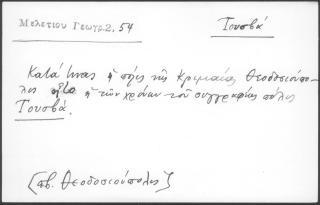 Μελετίου Γεωγρ. 2, 54
Τουσβᾶ
Κατά τινας ἡ πόλις τῆς Κριμαίας Θεοδοσιούπο-
λις ἡ τῶν χρόνων τοῦ συγγραφέως πόλις
Τουσβᾶ.
(πβ. Θεοδοσιούπολις)